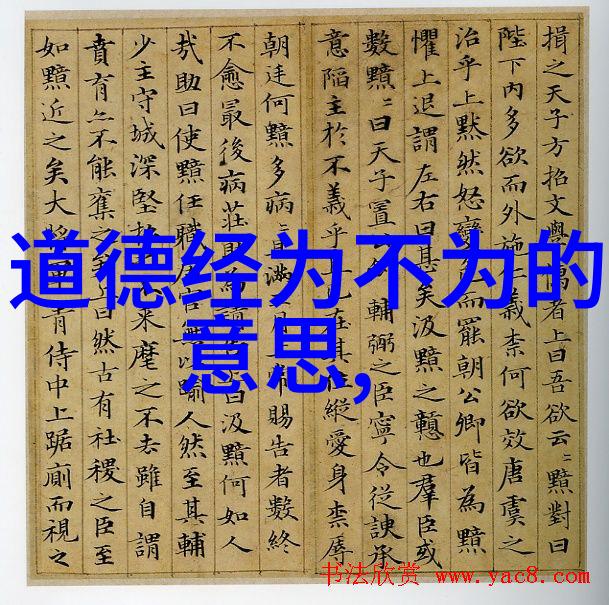 道德经为不为的
意思,
揖之天子方招文學儒者上曰吾欲云〻黯對曰
陛下内多欲而外施仁義柰何欲效唐虞之
治乎上黙然怒變色而罷朝公卿皆為黯
懼上退謂左右曰甚矣汲黯之戇也羣臣或
數黯〻曰天子置輔弼之臣寧令從諛承
意陷主於不義乎且已在其位縱愛身柰辱
朝廷何黯多病〻且滿月上常賜告者數終
不愈最後病莊助為請告上曰汲黯何如人
㢤助曰使黯任職居官無以踰人然至其輔
少主守城深堅招来麾之不去雖自謂
賁育亦不能奪之矣上曰然古有社稷之臣至
如黯近之矣大將軍青侍中上踞廁而視之
书法欣赏 www.yac8.com